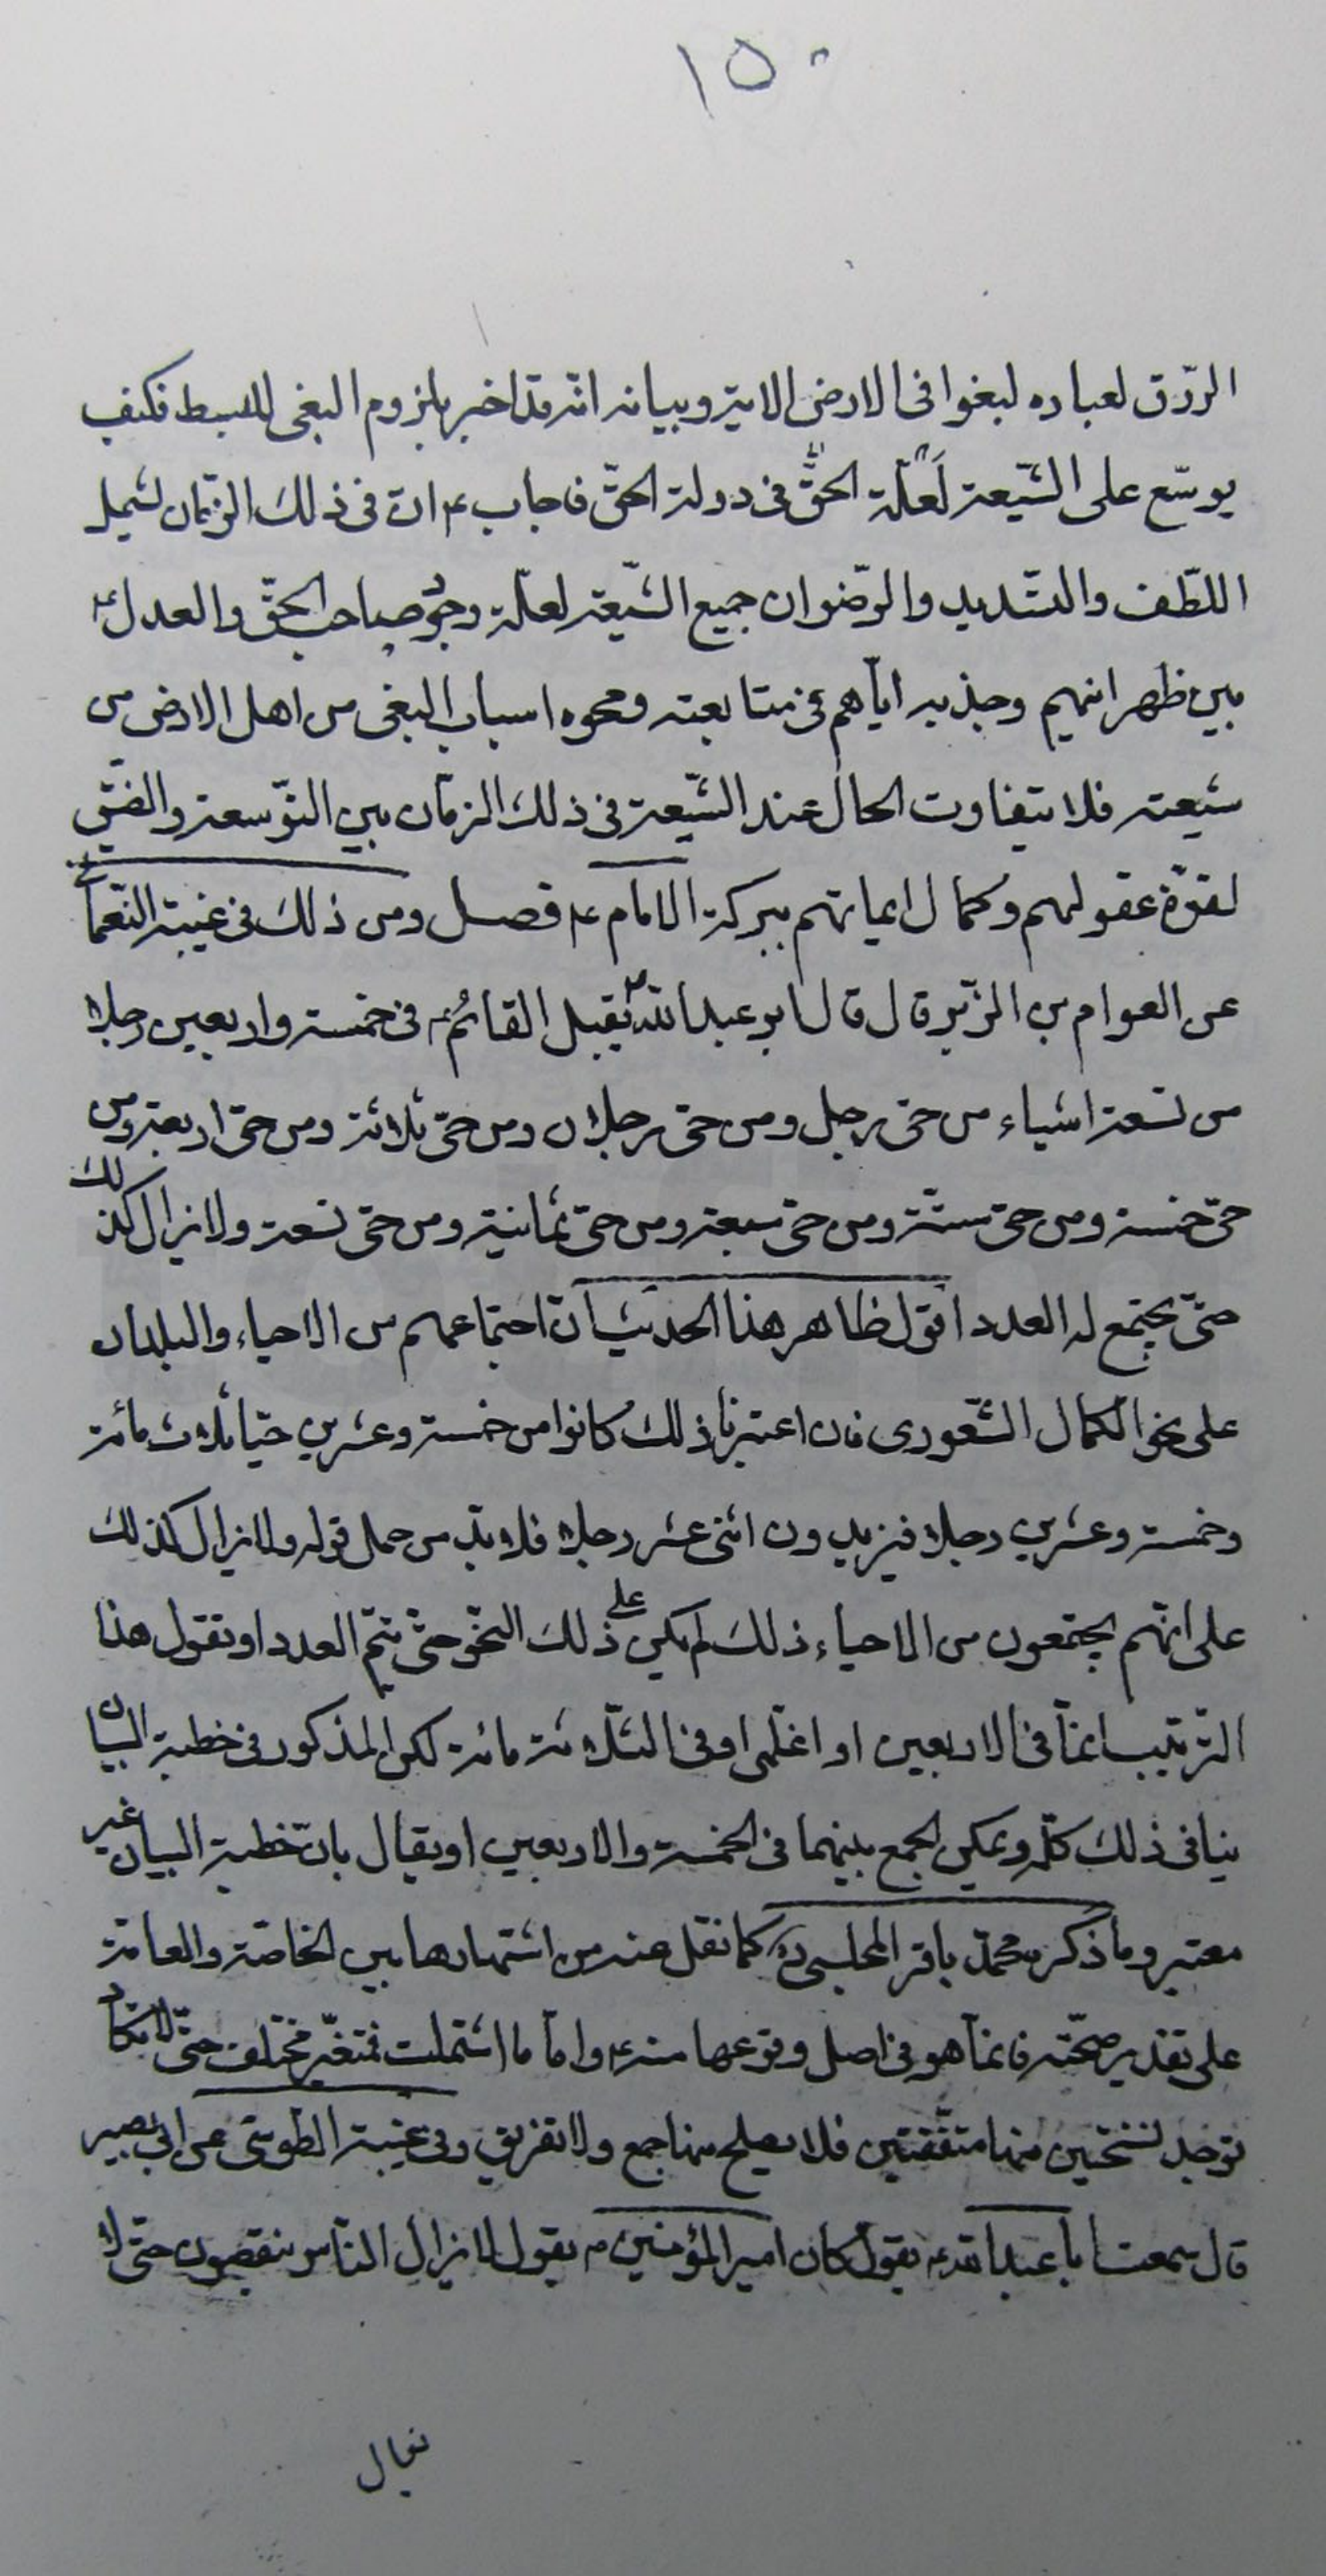 ١٥٠
الرّزق لعباده لبغوا فى الارض الاية وبيانه انّه قد اخبر بلزوم البغى للبسط فكيف
يوسّع على الشّيعة لعلّة الحقّ فى دولة الحقّ فاجاب ع انّ فى ذلك الزّمان لشمل
اللّطف والتّسديد والرّضوان جميع الشّيعة لعلّة وجود صاحب الحقّ والعدل ع
بين ظهرانيهم وجذبه ايّاهم فى متابعته ومحوه اسباب البغى من اهل الارض من
شيعته فلا يتفاوت الحال عند الشّيعة فى ذلك الزمان بين التّوسعة والضّيق
لقوّة عقولهم وكمال ايمانهم ببركة الامام ع فصل ومن ذلك فى غيبة النّعمانى
عن العوام بن الزّبير قال قال ابو عبد الله ع يقبل القائم ع فى خمسة واربعين رجلا
من تسعة احياء من حىّ رجل ومن حىّ رجلان ومن حىّ ثلاثة ومن حىّ اربعة ومن
حىّ خمسة ومن حىّ ستّة ومن حىّ سبعة ومن حىّ ثمانية ومن حىّ تسعة ولا يزال كذلك
حتّى يجتمع له العدد اقول ظاهر هذا الحديث انّ اجتماعهم من الاحياء والبلدان
على نحو الكمال الشّعورى فان اعتبرنا ذلك كانوا من خمسة وعشرين حيّا ثلاث مائة
وخمسة وعشرين رجلا فيزيدون اثنى عشر رجلا فلا بدّ من حمل قوله ولا يزال كذلك
على انّهم يجتمعون من الاحياء ذلك لم يكن على ذلك النّحو حتّى يتمّ العدد او نقول هذا
التّرتيب انّما فى الاربعين او اغلبى او فى الثّلاثة مائة لكن المذكور فى خطبة البيان
ينافى ذلك كلّه ويمكن الجمع بينهما فى الخمسة والاربعين او يقال بانّ خطبة البيان غير
معتبر وما ذكره محمّد باقر المجلسى ره كما نقل عنه من اشتهارها بين الخاصّة والعامّة
على تقدير صحّته فانّما هو فى اصل وقوعها منه ع وامّا ما اشتملت فمتغيّر مختلف حتّى لا تكاد
توجد نسختين منها متّفقتين فلا يصلح منها جمع ولا تفريق وفى غيبة الطّوسى عن ابى بصير
قال سمعت ابا عبد الله ع يقول كان امير المؤمنين ع يقول لا يزال النّاس ينقصون حتّى لا
يقال